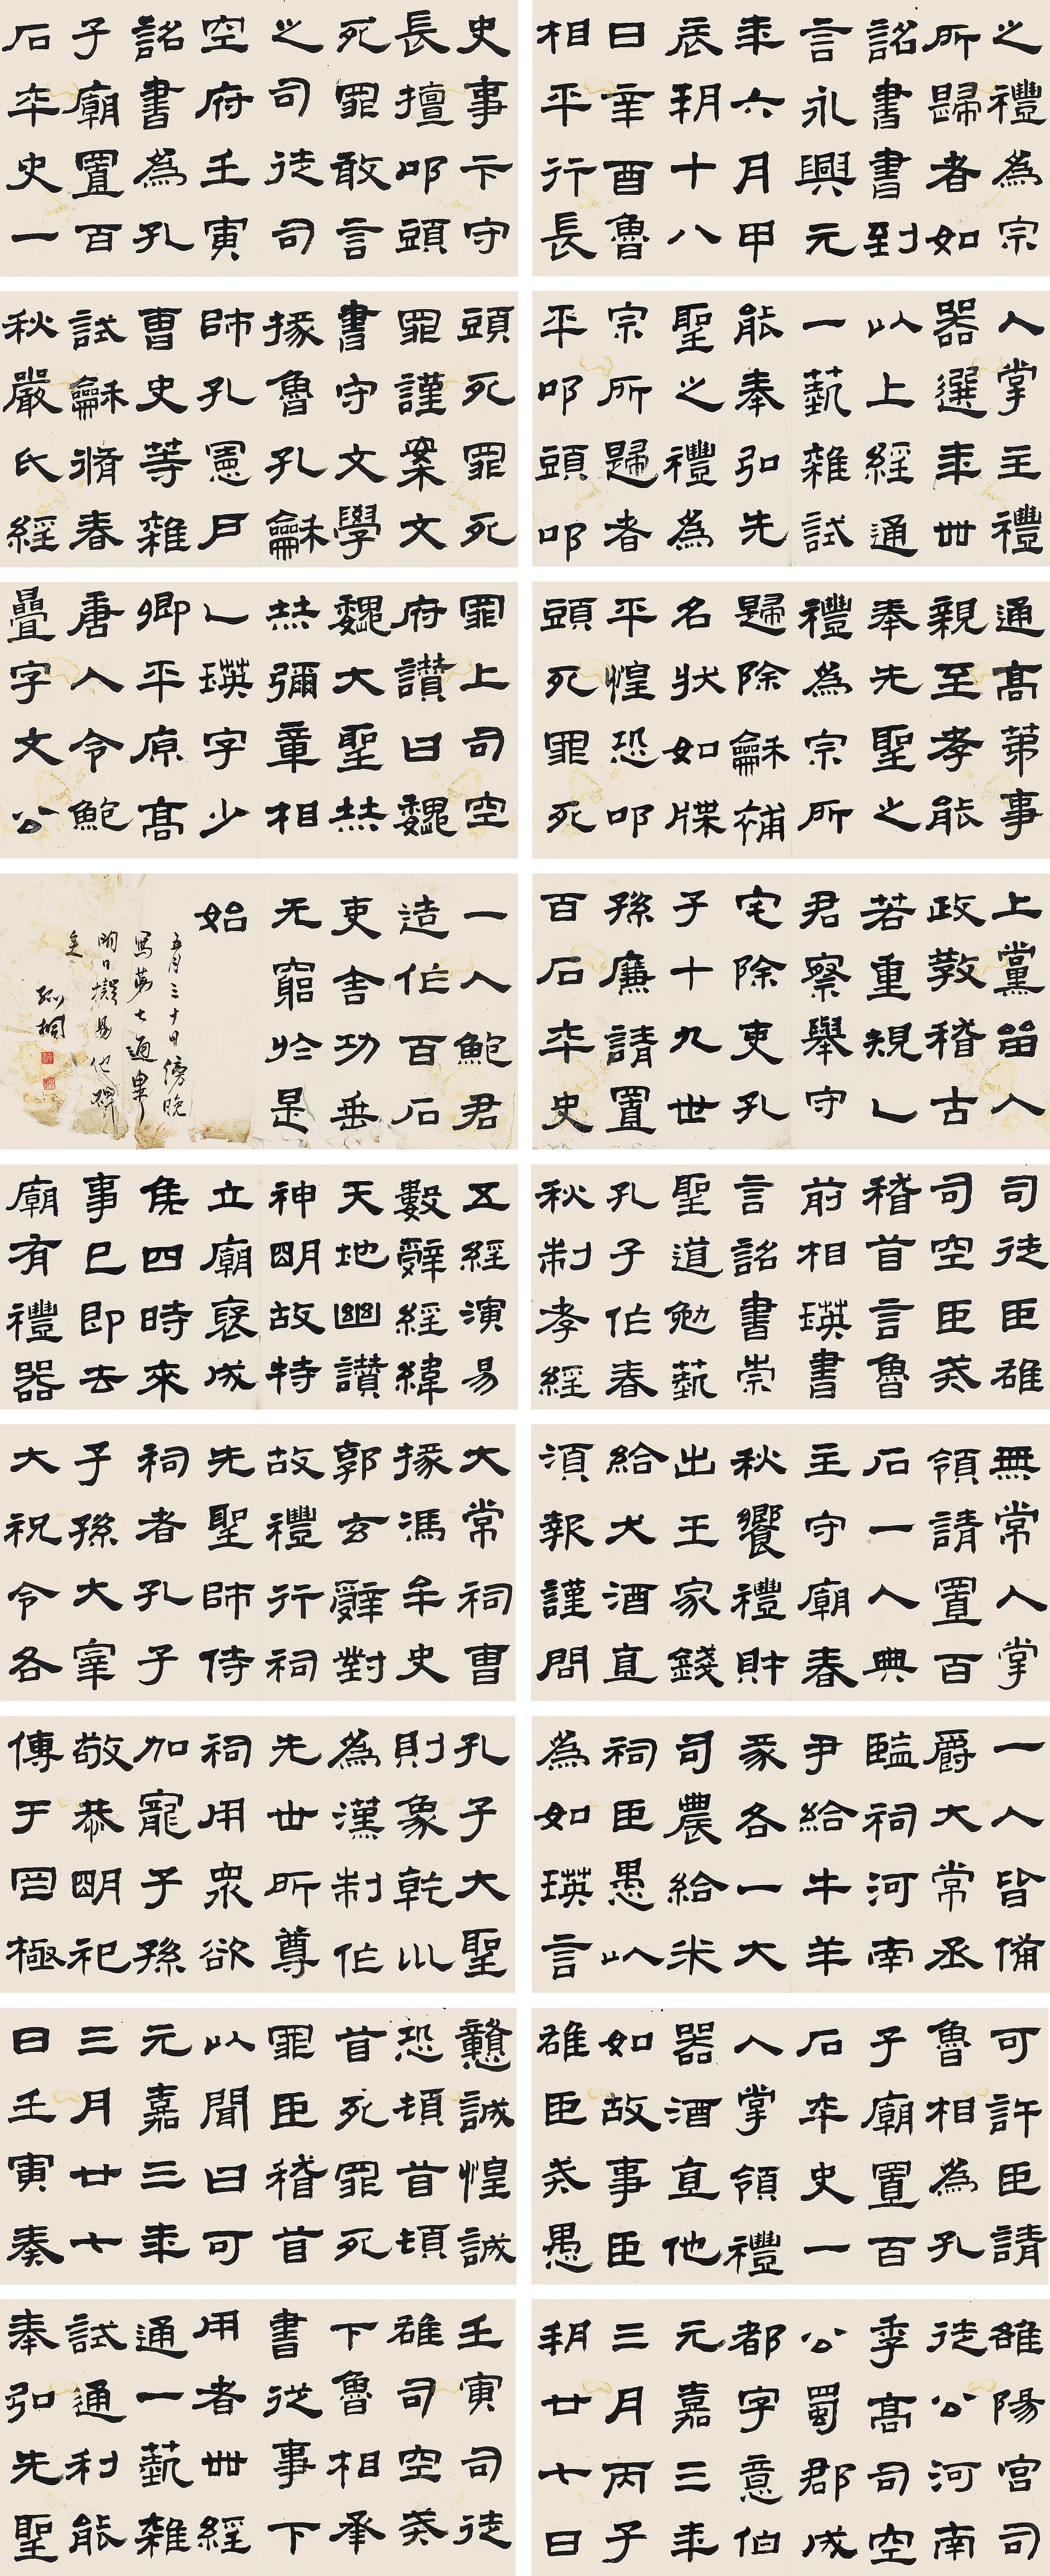 之禮為宗
所歸者如
詔書書到
言永興元
年六月甲
辰朔十八
日辛酉魯
相平行長
史事卞守
長擅叩頭
死罪敢言
之司徒司
空府壬寅
詔書為孔
子廟置百
石卒史一
人掌主禮
器選年卌
以上經通
一藝雜試
能奉弘先
聖之禮為
宗所歸者
平叩頭叩
頭死罪死
罪謹案文
書守文學
掾魯孔龢
師孔憲戶
曹史等雜
試龢脩春
秋嚴氏經
通高第事
親至孝能
奉先聖之
禮為宗所
歸除龢補
名狀如牒
平惶恐叩
頭死罪死
罪上司空
府讚曰巍
巍大聖赫
赫彌章相
乙瑛字少
卿平原高
唐人令鮑
疊字文公
上黨留人
政教稽古
若重規乙
君察舉守
宅除吏孔
子十九世
孫廉請置
百石卒史
一人鮑君
造作百石
吏舍功垂
无窮於是
始
五月三十日傍晚
寫第七通畢
明日擬易他碑
矣
孤桐
司徒臣雄
司空臣戒
稽首言魯
前相瑛書
言詔書崇
聖道勉藝
孔子作春
秋制孝經
五經演易
數辭經緯
天地幽讚
神明故特
立廟褒成
侯四時來
事已即去
廟有禮器
無常人掌
領請置百
石一人典
主守廟春
秋饗禮財
出王家錢
給犬酒直
須報謹問
大常祠曹
掾馮牟史
郭玄辭對
故禮行祠
先聖師侍
祠者孔子
子孫大宰
大祝令各
一人皆備
爵大常丞
監祠河南
尹給牛羊
豕各一大
司農給米
祠臣愚以
為如瑛言
孔子大聖
則象乾川
為漢制作
先世所尊
祠用眾欲
加寵子孫
敬恭明祀
傳于罔極
可許臣請
魯相為孔
子廟置百
石卒史一
人掌領禮
器酒直他
如故事臣
雄臣戒愚
戇誠惶誠
恐頓首頓
首死罪死
罪臣稽首
以聞曰可
元嘉三年
三月廿七
日壬寅奏
雒陽宮司
徒公河南
季高司空
公蜀郡成
都字意伯
元嘉三年
三月丙子
朔廿七日
壬寅司徒
雄司空戒
下魯相承
書從事下
用者卌經
通一藝雜
試通利能
奉弘先聖